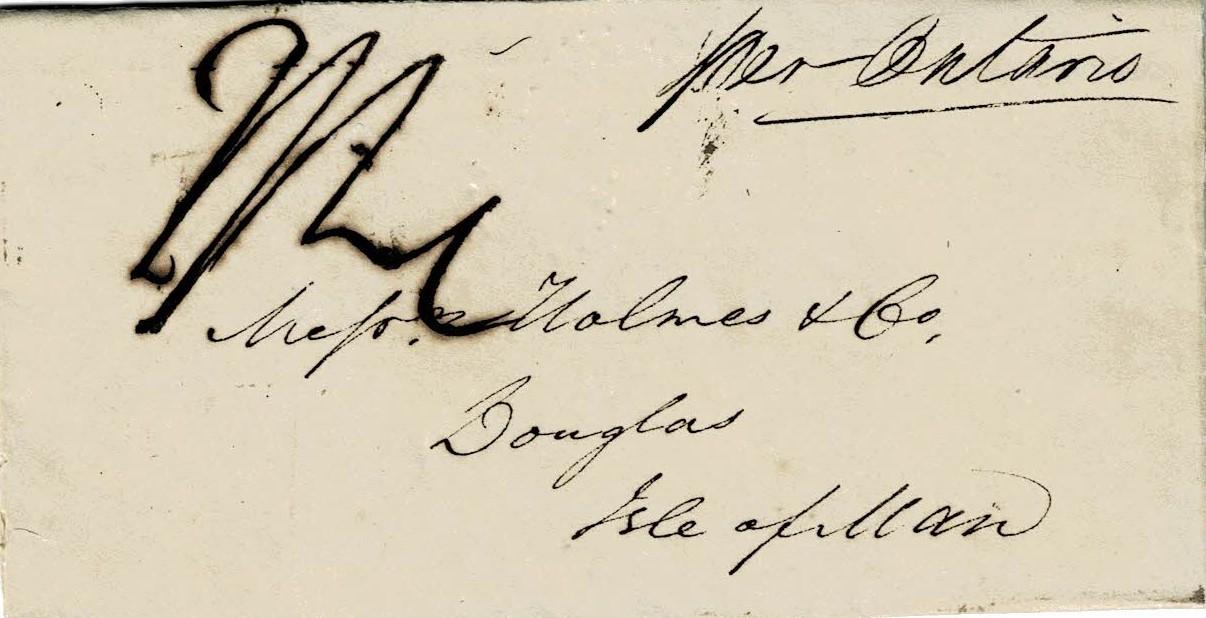 per Ontario
Messrs Holmes & Co,
Douglas
Isle of Man